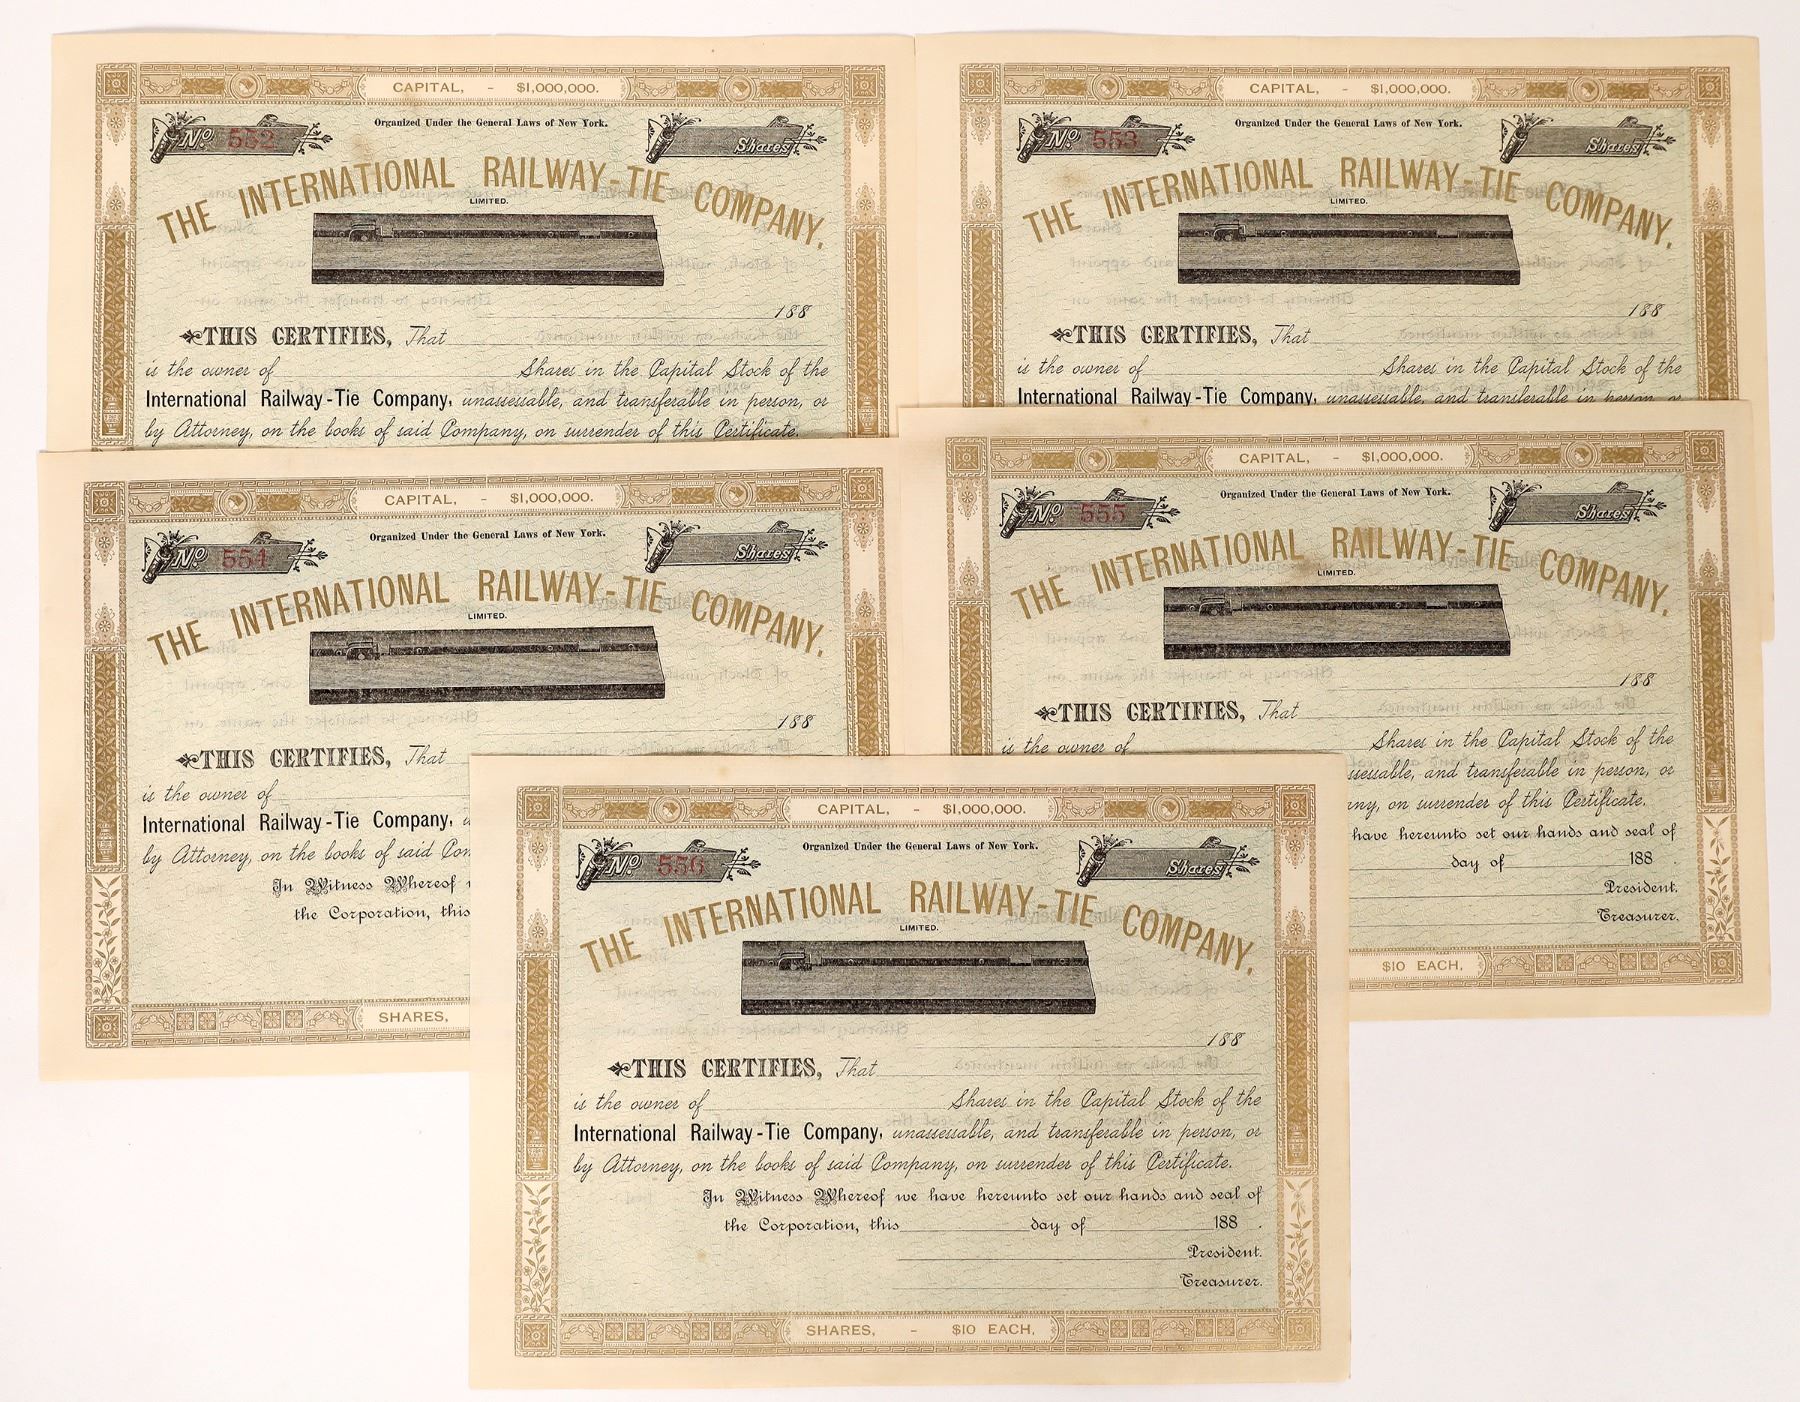 CAPITAL, - $1,000,000.
Organized Under the General Laws of New York.
No. 552
Shares
THE INTERNATIONAL RAILWAY-TIE COMPANY,
LIMITED.
188
THIS CERTIFIES, That
is the owner of Shares in the Capital Stock of the
International Railway-Tie Company, unassessable, and transferable in person, or
by Attorney, on the books of said Company, on surrender of this Certificate.
CAPITAL, - $1,000,000.
Organized Under the General Laws of New York.
No. 553
Shares
THE INTERNATIONAL RAILWAY-TIE COMPANY,
LIMITED.
188
THIS CERTIFIES, That
is the owner of Shares in the Capital Stock of the
International Railway-Tie Company, unassessable, and transferable in person, or
CAPITAL, - $1,000,000.
Organized Under the General Laws of New York.
No. 554
Shares
THE INTERNATIONAL RAILWAY-TIE COMPANY,
LIMITED.
188
THIS CERTIFIES, That
is the owner of
International Railway-Tie Company,
by Attorney, on the books of said Com
In Witness Whereof
the Corporation, this
SHARES,
CAPITAL, - $1,000,000.
Organized Under the General Laws of New York.
No. 555
Shares
THE INTERNATIONAL RAILWAY-TIE COMPANY,
LIMITED.
188
THIS CERTIFIES, That
is the owner of Shares in the Capital Stock of the
ssessable, and transferable in person, or
ny, on surrender of this Certificate.
have hereunto set our hands and seal of
day of 188
President.
Treasurer.
$10 EACH,
CAPITAL, - $1,000,000.
Organized Under the General Laws of New York.
No. 556
Shares
THE INTERNATIONAL RAILWAY-TIE COMPANY,
LIMITED.
188
THIS CERTIFIES, That
is the owner of Shares in the Capital Stock of the
International Railway-Tie Company, unassessable, and transferable in person, or
by Attorney, on the books of said Company, on surrender of this Certificate.
In Witness Whereof we have hereunto set our hands and seal of
the Corporation, this day of 188 .
President.
Treasurer.
SHARES, - $10 EACH,